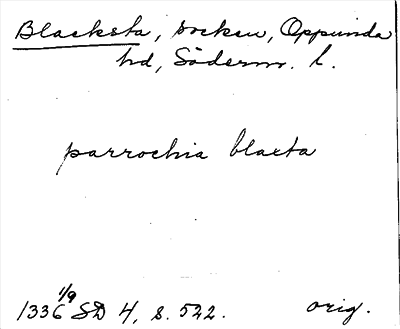 Blacksta, socken, Oppunda
hd, Söderm. l.
parrochia blaxta
1336 1/9 SD 4, s. 522. orig.